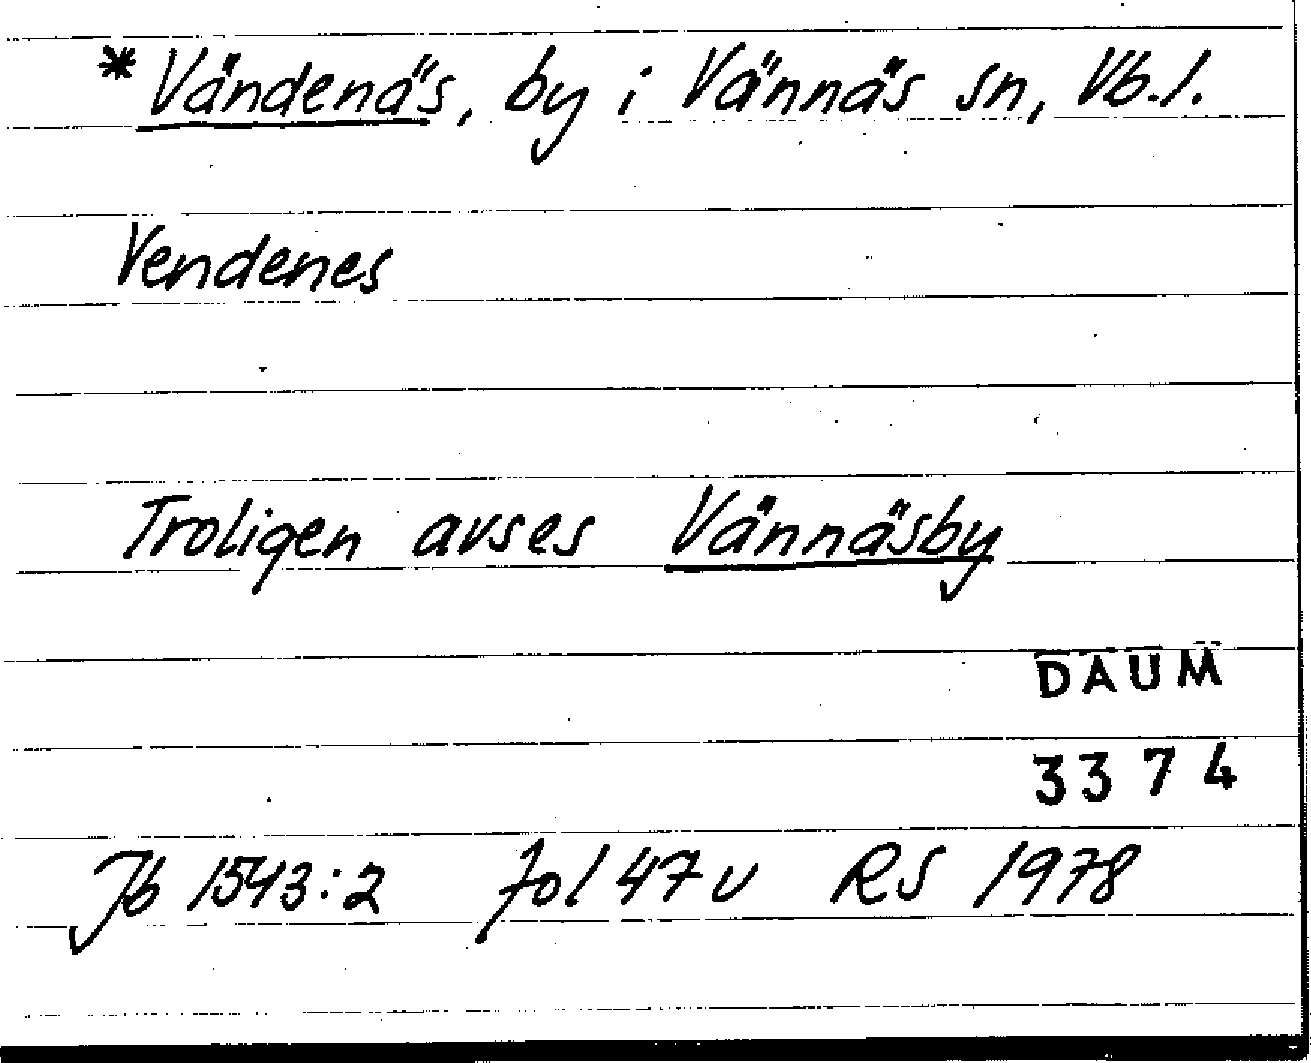 * Vändenäs, by i Vännäs sn, Vb.l.
Vendenes
Troligen avses Vännäsby
DAUM
3374
Jb 1543:2 fol 47 v RS 1978